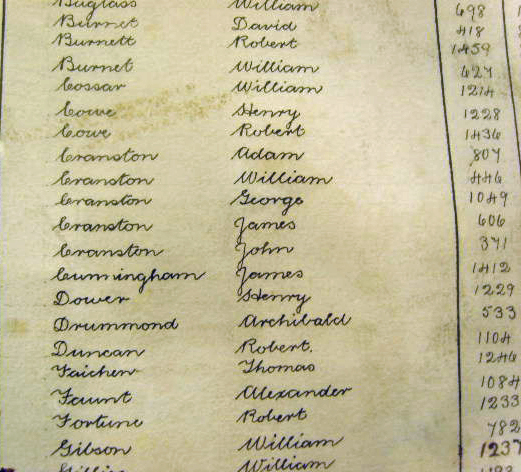 Buglass William 698
Burnet David 418
Burnett Robert 1459
Burnet William 627
Cossar William 1214
Cowe Henry 1228
Cowe Robert 1436
Cranston Adam 807
Cranston William 446
Cranston George 1049
Cranston James 606
Cranston John 371
Cunningham James 1412
Dower Henry 1229
Drummond Archibald 533
Duncan Robert. 1104
Faichen Thomas 1246
Faunt Alexander 1084
Fortune Robert 1233
Gibson William 782
William 1237